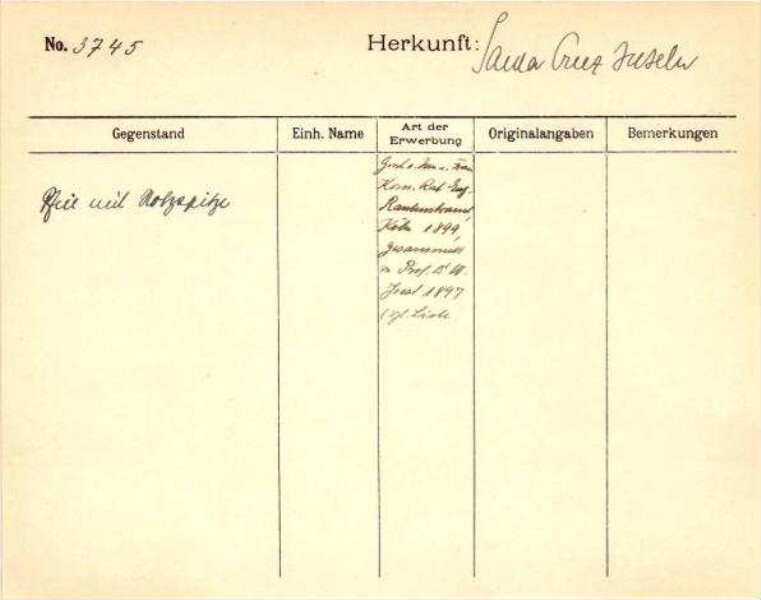 No. 3745
Herkunft: Santa Cruz Inseln
Gegenstand
Einh. Name
Art der
Erwerbung
Originalangaben
Bemerkungen
Pfeil mit Holzspitze
Gesch. v. Herrn u. Frau
Kom. Rat Eug.
Rautenstrauch,
Köln 1899,
gesammelt
v. Prof. Dr W.
Joest 1897
(vgl. Liste